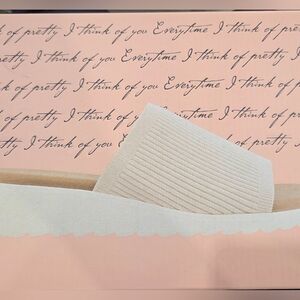 k of pretty I think of you Everytime I think of pretty I th
of pretty I think of you Everytime I think of pretty
pretty I think of you Everytime I think of pretty I
k of pretty I think of you Everytime I think of pretty
of pretty I think of you Everytime I think of pretty
pretty I think of you of pretty I